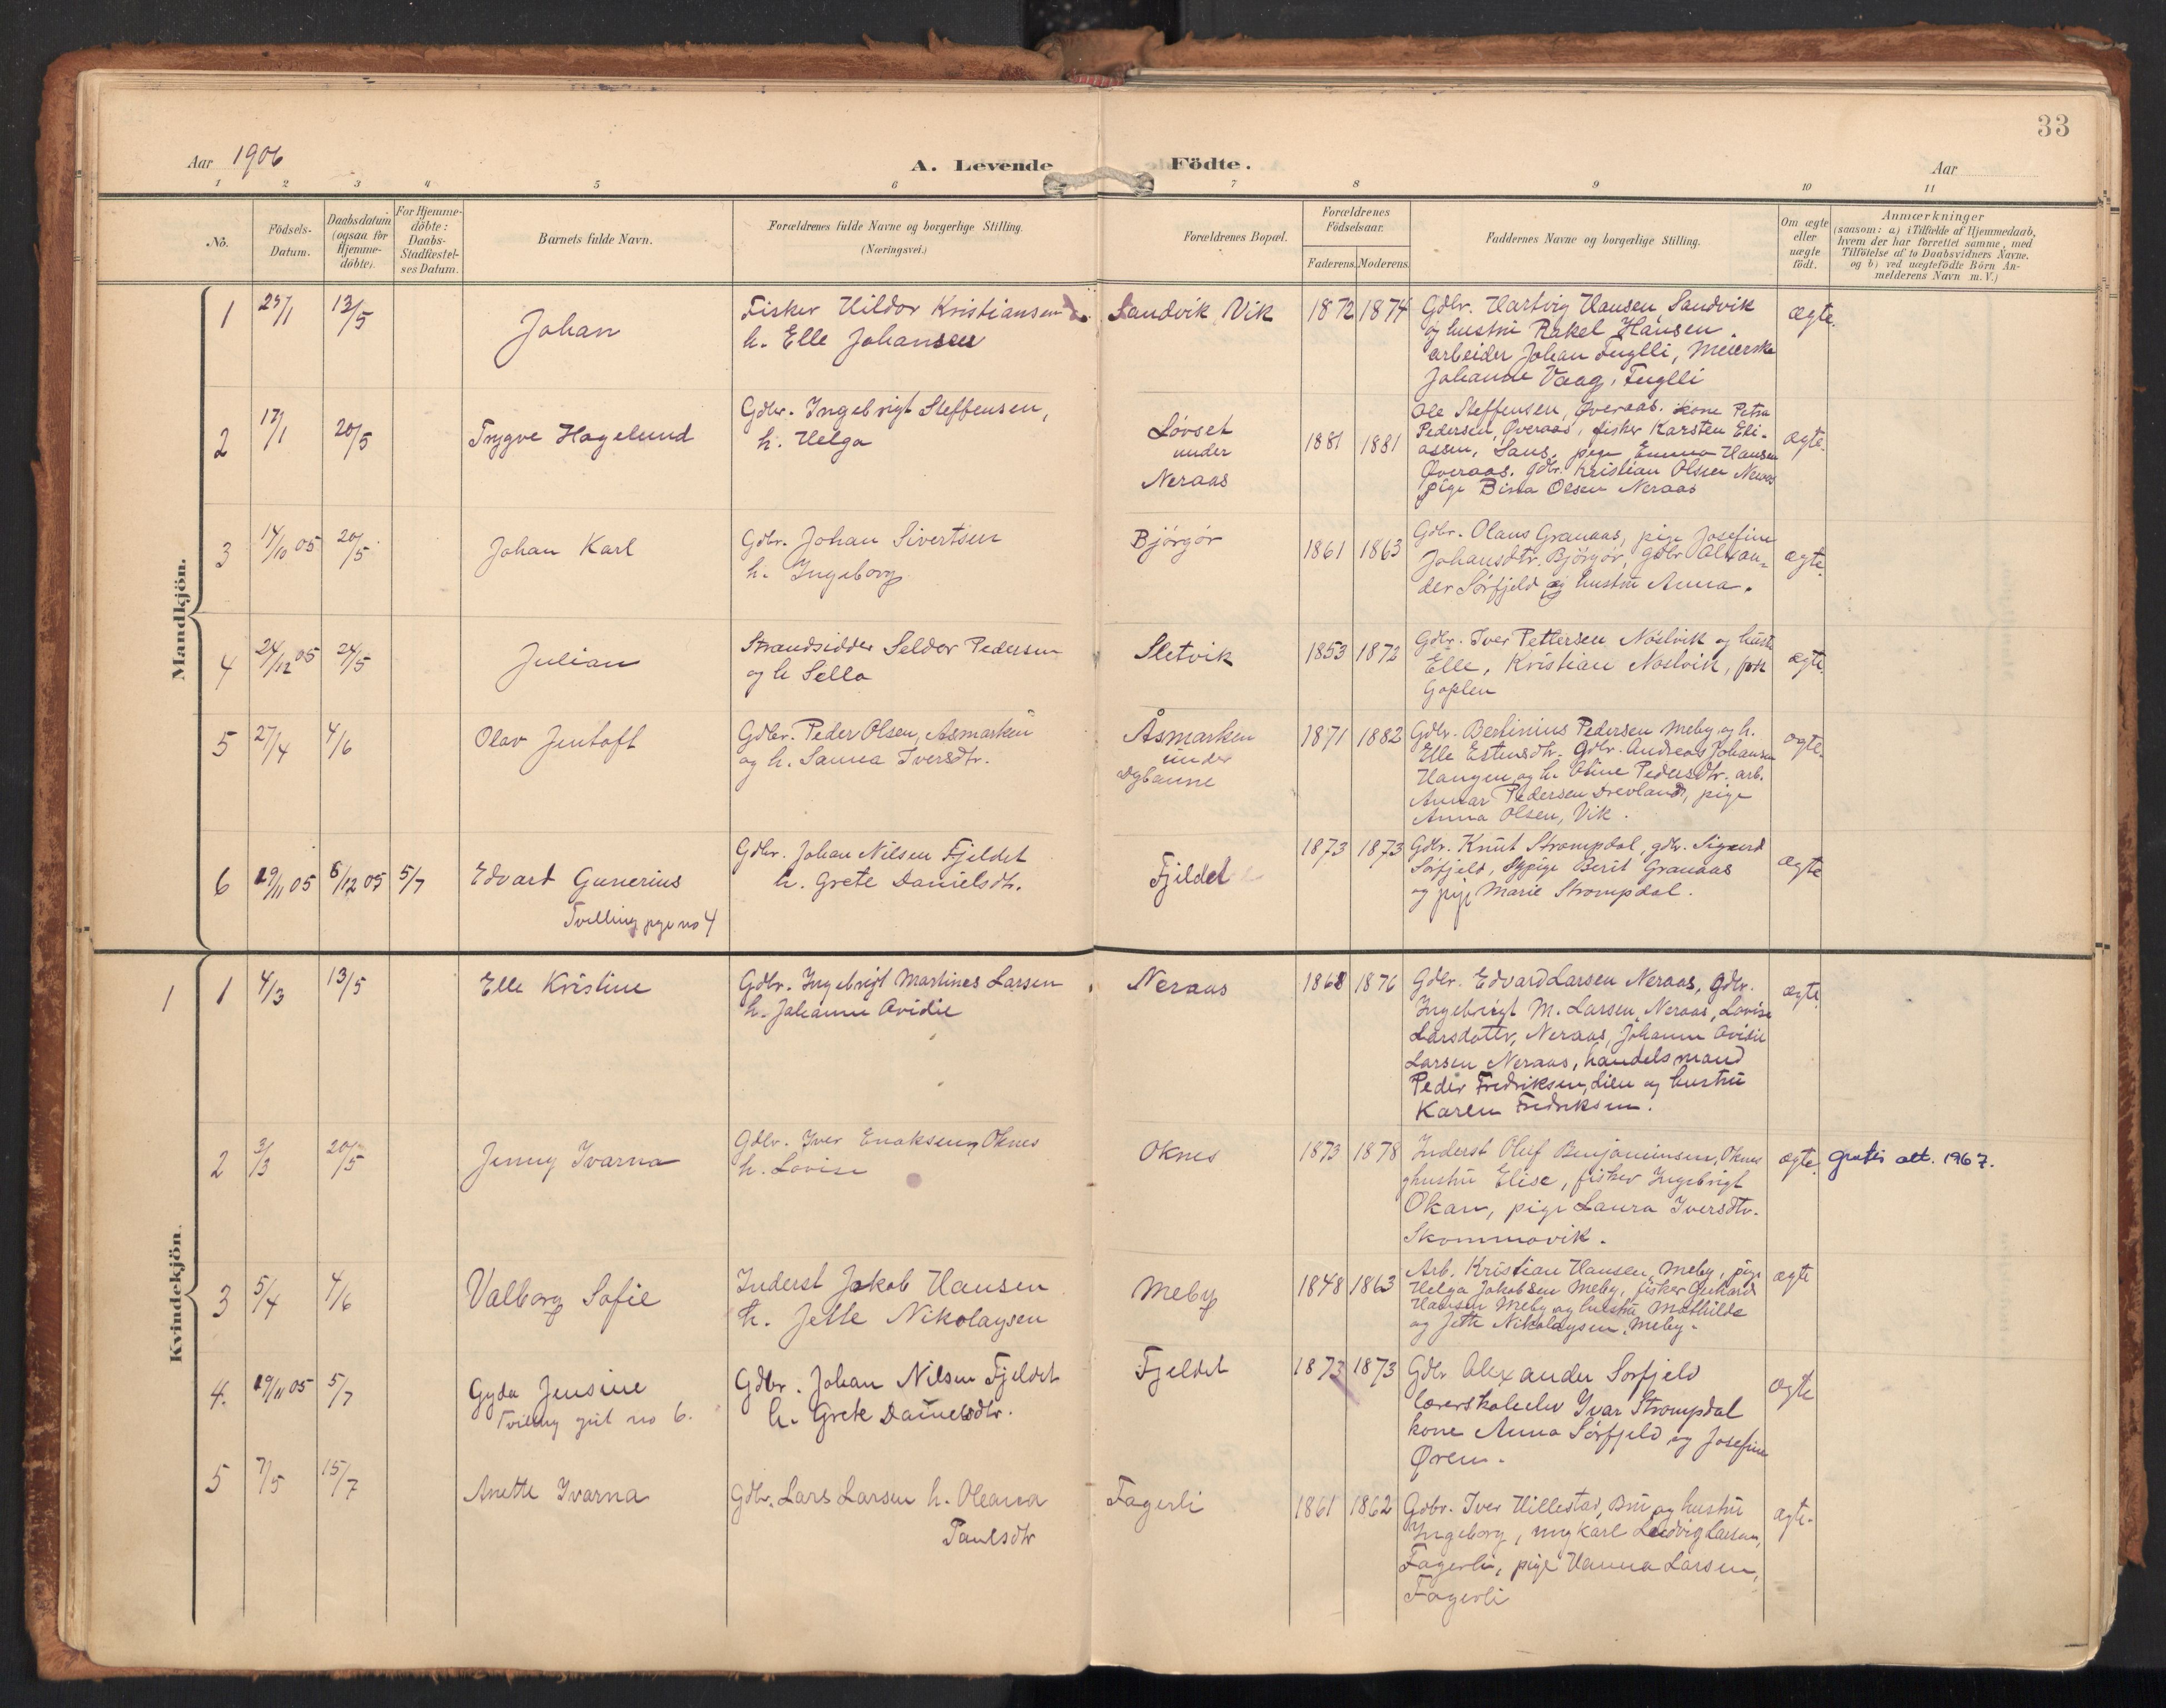 33
Aar 1906
A. Levende Födte.
Aar
1 2 3 4 5 6 7 8 9 10 11
No.
Födsels-
Datum.
Daabsdatum
(ogsaa for
Hjemme-
döbte).
For Hjemme-
döbte:
Daabs-
Stadfæstel-
ses Datum.
Barnets fulde Navn.
Forældrenes fulde Navne og borgerlige Stilling.
(Næringsvei.)
Forældrenes Bopæl.
Forældrenes
Födselsaar.
Faderens. Moderens.
Faddernes Navne og borgerlige Stilling.
Om ægte
eller
uægte
födt.
Anmærkninger
(saasom: a) i Tilfælde af Hjemmedaab,
hvem der har forrettet samme, med
Tilföielse af to Daabsvidners Navne.
og b) ved uægtefödte Börn An-
melderens Navn m.V.)
Mandkjön.
1 /1 13/5 Johan
Fisker Hildor Kristiansen
h. Elle Johansen
Sandvik Vik
1872 1874
Gdbr. Hartvig Hansen, Sandvik
og hustru Rakel Hansen.
arbeider Johan Fuglli, Meierske
Johanne Vaag, Fuglli
ægte.
2 17/1 20/5 Trygve Hagelund
Gdbr. Ingebrigt Steffensen,
h. Helga
Løvset
under
Neraas
1881 1881
Ole Steffensen, Øveraas. kone Petra
Pedersen, Øveraas, fisker Karsten Eli-
assen, Saus, pige Emma Hansen
Øveraas. gdbr. Kristian Olsen Neraas
pige Bina Olsen Neraas
ægte.
3 14/10 05 20/5 Johan Karl
Gdbr. Johan Sivertsen
h. Ingeborg
Bjørgør
1861 1863
Gdbr. Olaus Granaas, pige Josefine
Johansdtr. Bjørgør, gdbr Alexan-
der Sørfjeld og hustru Anna.
ægte.
4 24/12 05 24/5 Julian
Strandsidder Selder Pedersen
og h Sella
Sletvik
1853 1872
Gdbr. Iver Pettersen Nøstvik og hustr
Elle, Kristian Nøstvik,
Goplen
ægte.
5 27/4 4/6 Olav Jentoft
Gdbr. Peder Olsen, Åsmarken
og h. Sanna Iversdtr.
Åsmarken
under
1871 1882
Gdbr. Bertinius Pedersen Meby og h.
Elle Estensdtr. Gdbr. Andreas Johansen
Haugen og h. Oline Pedersdtr. arb.
Annar Pedersen Drevland, pige
Anna Olsen, Vik.
ægte.
6 19/11 05 8/12 05 5/7 Edvard Gunerius
Tvilling pige no 4
Gdbr. Johan Nilsen Fjeldet
h. Grete Danielsdtr.
Fjeldet
1873 1873
Gdbr. Knut Strompdal, gdbr. Sigurd
Sørfjeld, Sypige Berit Granaas
og pige Marie Strompdal.
ægte
Kvindekjön.
1 1 4/3 13/5 Elle Kristine
Gdbr. Ingebrigt Martines Larsen
h. Johanne Ovidie
Neraas
1868 1876
Gdbr. Edvard Larsen Neraas, gdbr.
Ingebrigt M. Larsen, Neraas, Lovise
Larsdotter, Neraas, Johanne Ovidie
Larsen Neraas, handelsmand
Peder Fredriksen, Lien og hustru
Karen Fredriksen.
ægte.
2 3/3 20/5 Jenny Ivarna
Gdbr. Iver Enoksen, Oknes
h. Lovise
Oknes
1873 1878
Inderst Oluf Benjaminsen, Oknes
og hustru Elise, fisker Ingebrigt
Okan, pige Laura Iversdtr.
Skommovik.
ægte.
gratis att. 1967.
3 5/4 4/6 Valborg Sofie
Inderst Jakob Hansen
h. Jette Nikolaysen
Meby
1848 1863
Arb. Kristian Hansen, Meby, pige
Helga Jakobsen Meby, fisker Gerhard
Hansen Meby og hustru Mathilde
og Jette Nikolaysen, Meby.
ægte
4. 19/11 05 5/7 Gyda Jensine
Tvilling gut no 6.
Gdbr. Johan Nilsen Fjeldet
h. Grete Danielsdtr.
Fjeldet
1873 1873
Gdbr Alexander Sørfjeld
lærerskoleelev Ivar Strompdal
kone Anna Sørfjeld og Josefine
Øren.
ægte
5 7/5 15/7 Anette Ivarna
Gdbr. Lars Larsen h. Oleana
Paulsdtr
Fagerli
1861 1862
Gdbr. Iver Hillestad, Bru og hustru
Ingeborg, ung Karl Ludvig Larsen,
Fagerli, pige Hanna Larsen,
Fagerli
ægte.